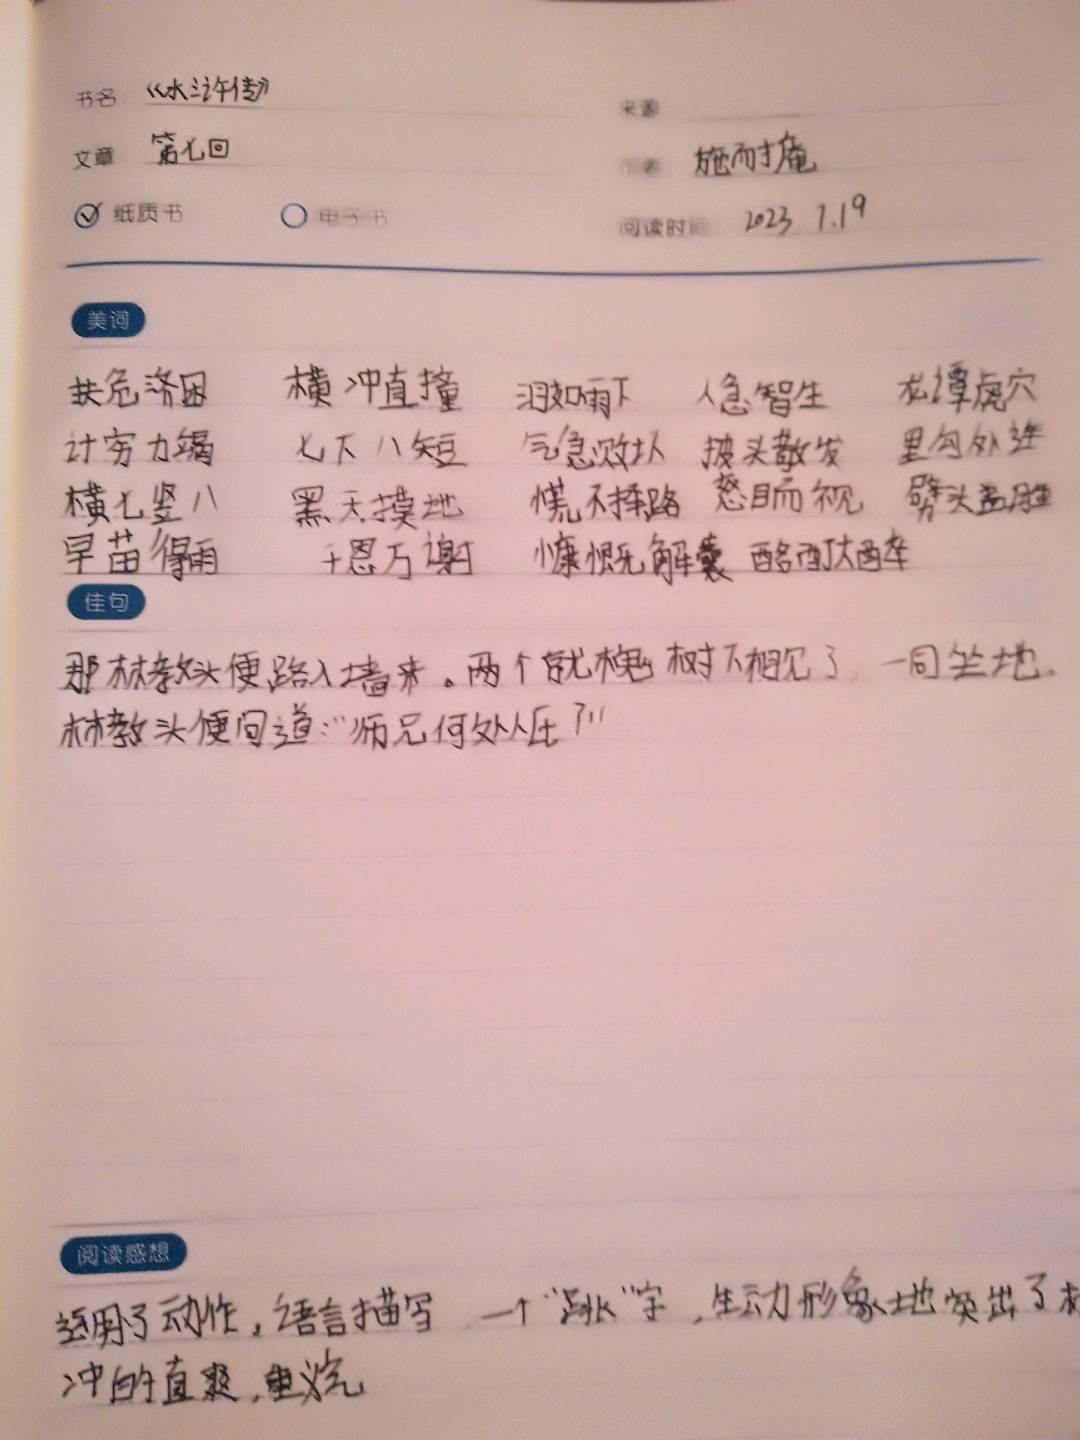 书名 《水浒传》 来源
文章 第七回 作者 施耐庵
纸质书 电子书 阅读时间 2023 7.19
美词
扶危济困 横冲直撞 泪如雨下 人急智生 龙谭虎穴
计穷力竭 七下八短 气急败坏 披头散发 里勾外连
横七竖八 黑天摸地 慌不择路 怒目而视 劈头盖脸
旱苗得雨 千恩万谢 慷慨解囊 酩酊大醉
佳句
那林教头便路入墙来。两个就槐树下相见了,一同坐地。
林教头便问道:"师兄何处人氏?"
阅读感想
运用了动作,语言描写,一个"跳"字,生动形象地突出了林
冲的直爽,